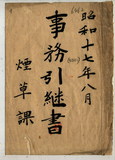 昭和十七年八月
事務引継書
煙草課